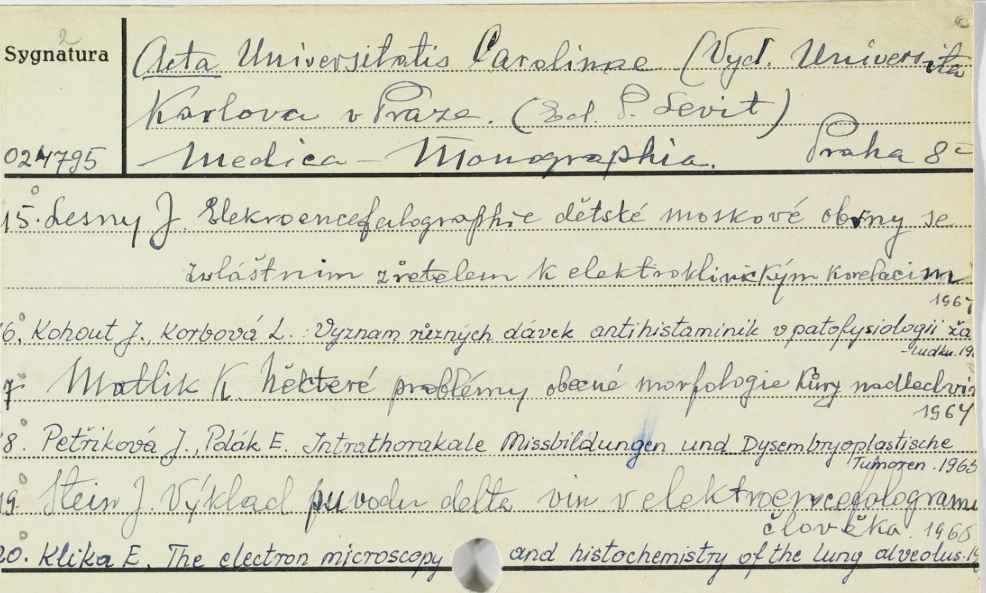 2
Sygnatura
Acta Universitatis Carolinae (Vyd. Universita
Karlova v Praze. (Ed. P. Levit)
024795
Medica - Monographia. Praha 8°
15. Lesny J. Elekroencefalographie dětské moskové obrny se
zvláštnim zřetelem k elektroklinickým korelacim
1964
16. Kohout J., Korbová L. : Vyznam různých dávek antihistaminik v patofysiologii ža
-ludku. 19
7. Matlik K Některé problémy obecné morfologie kůry nadledvin
1964
18. Petřiková J., Polák E. Intrathorakale Missbildungen und Dysembryoplastische
Tumoren. 1965
19. Stein J. Výklad puvodu delta vln v elektroencefalogramu
člověka. 1965
20. Klika E. The electron microscopy and histochemistry of the lung alveolus. 19